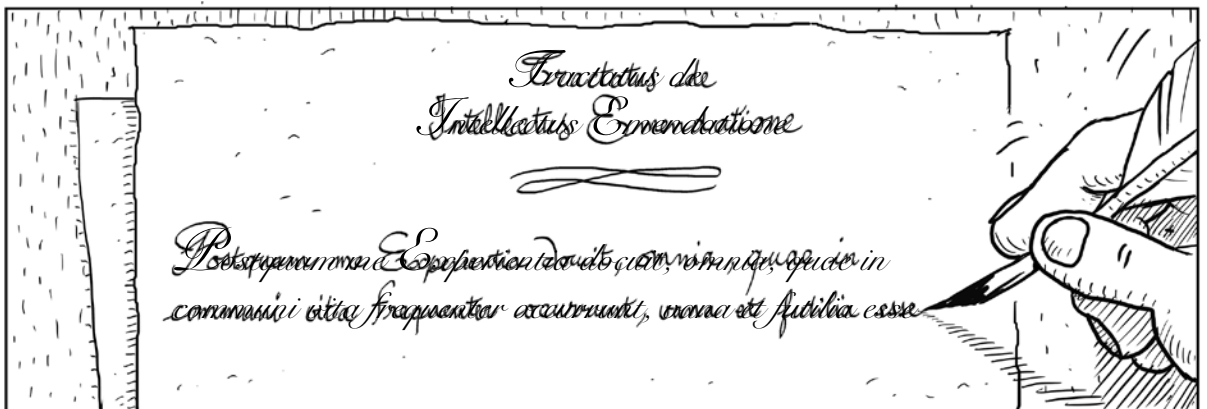 Tractatus de
Intellectus Emendatione
Postquam me Experientia docuit, omnia, quae in
communi vita frequenter occurrunt, vana et futilia esse